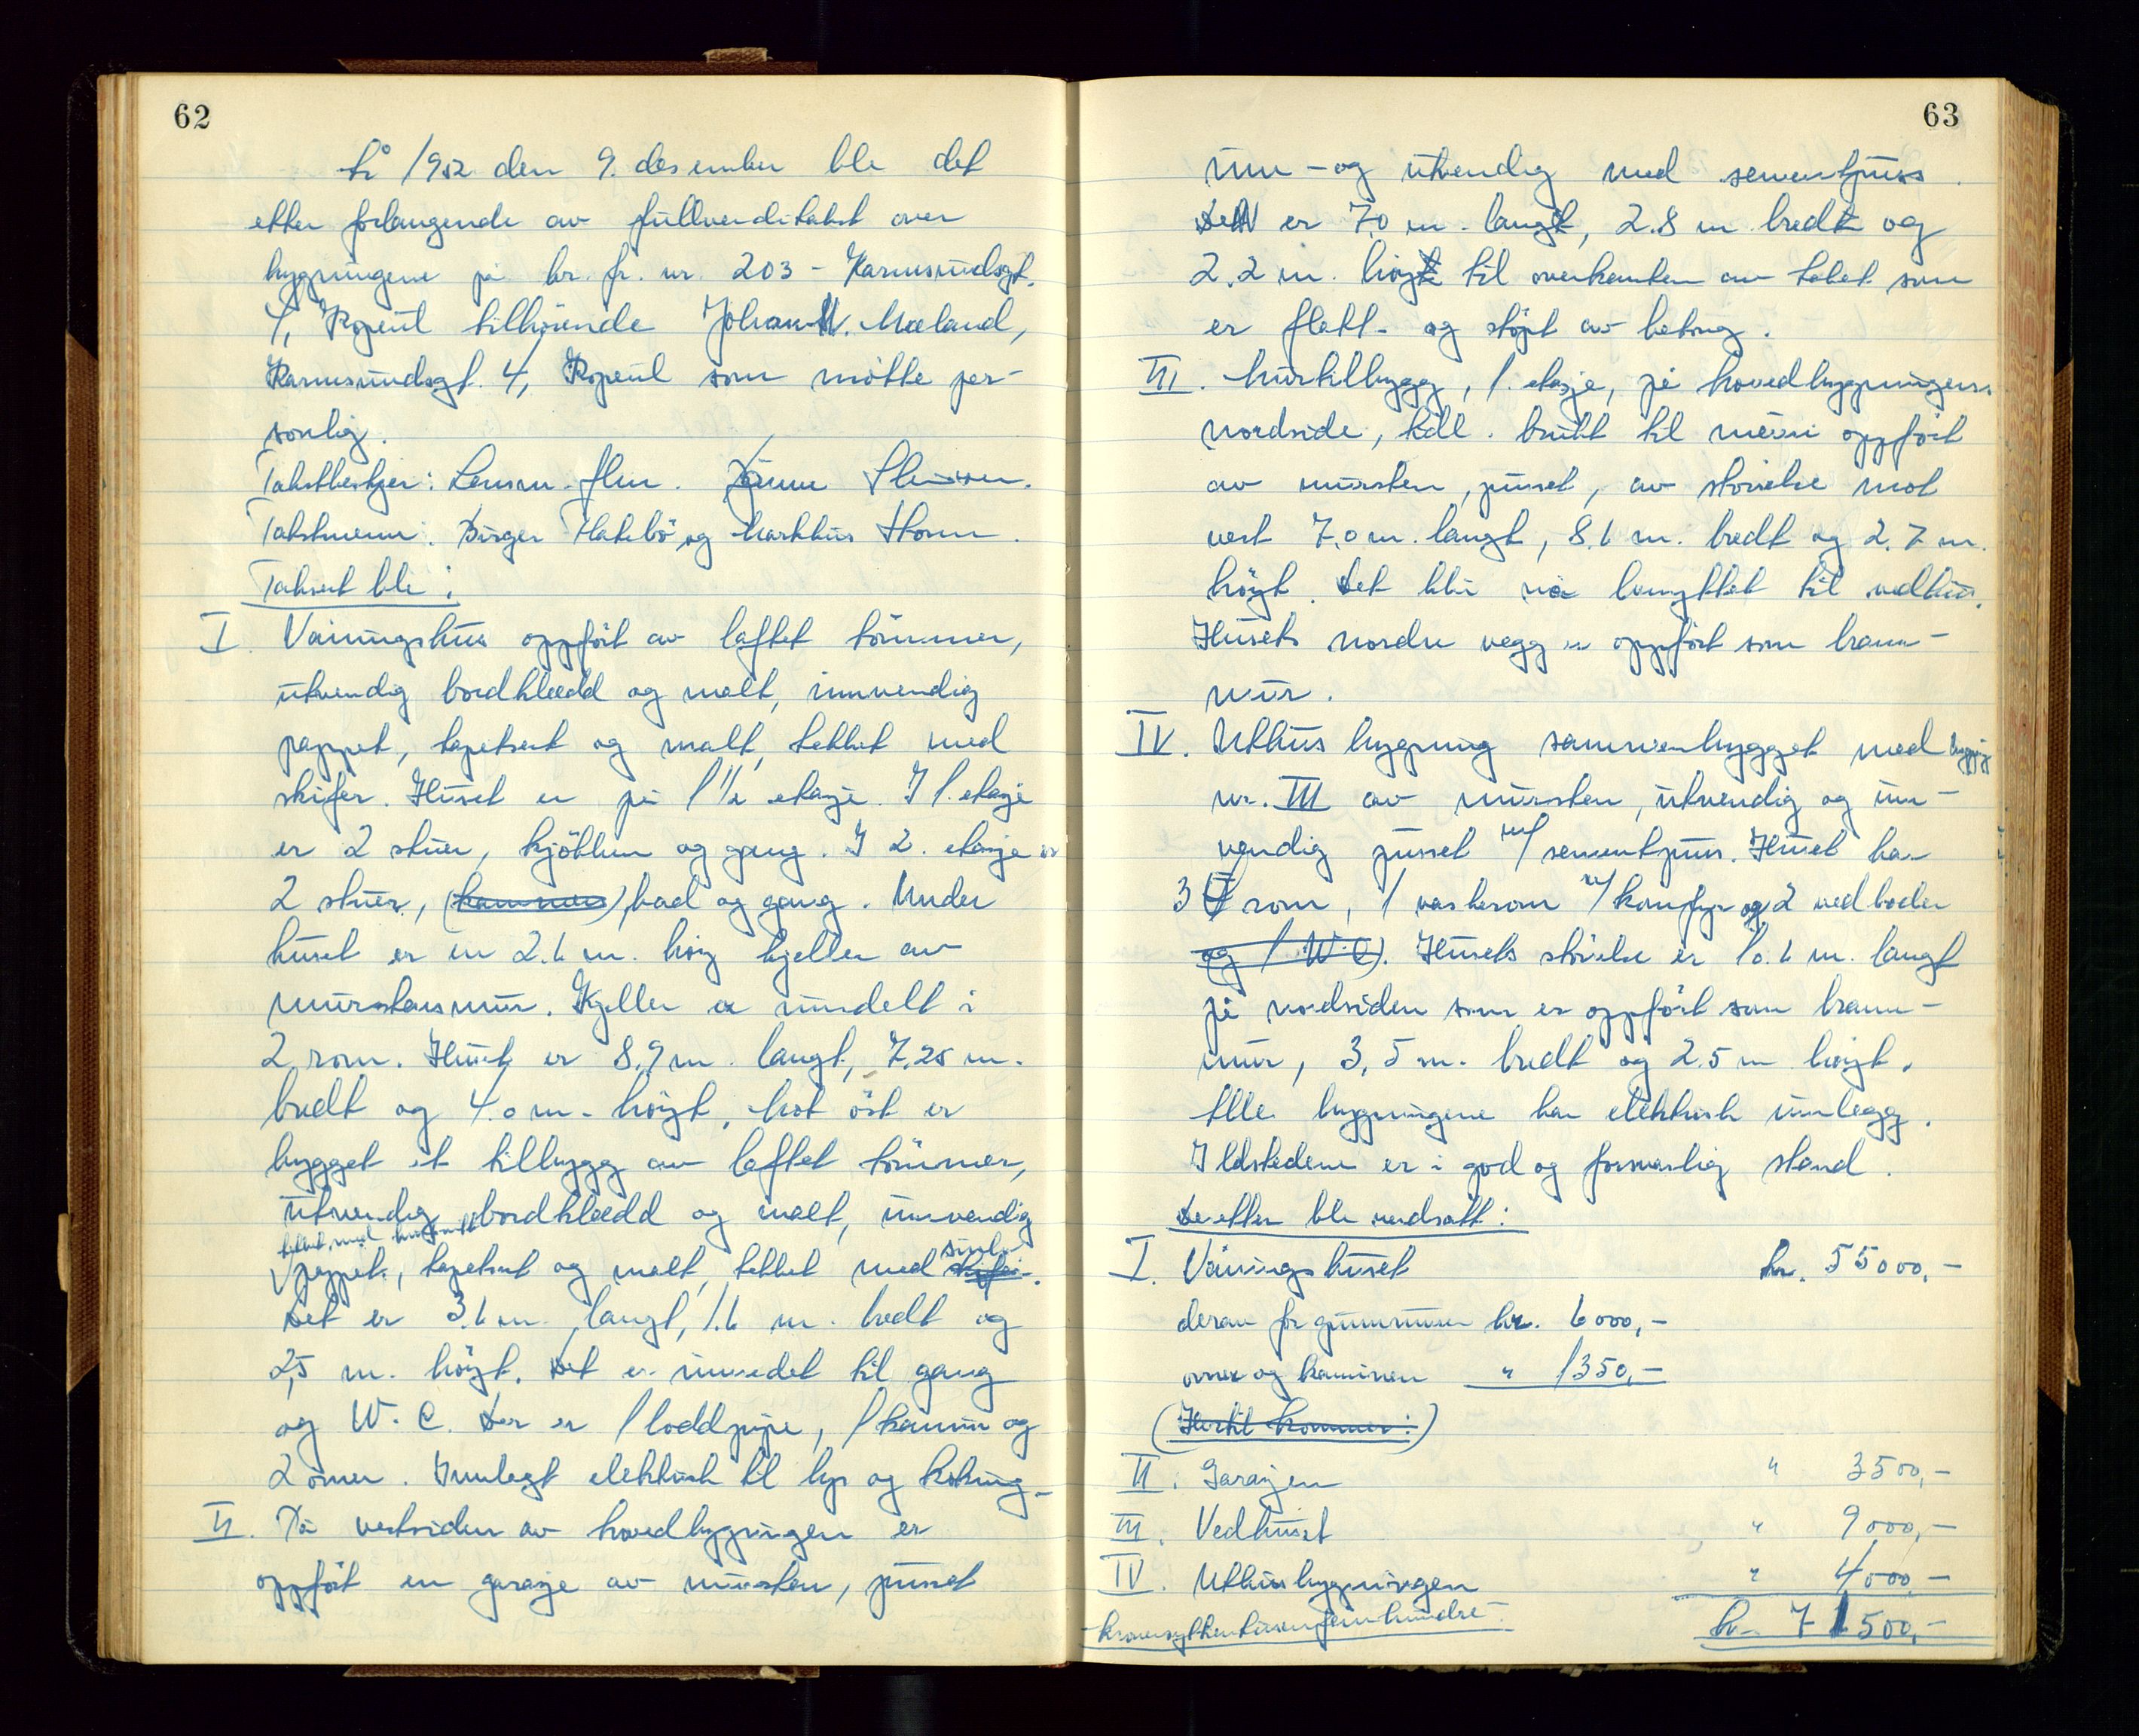 62
År 1952 den 9. desember ble det
etter forlangende av fullverditakst over
bygningene på br. fr. nr. 203 - Karmsundsgt.
4, Kopervik tilhörende Johan M. Mæland,
Karmsundsgt. 4, Kopervik som mötte per-
sonlig.
Takstbestyrer: Lensm. flm.
Takstmenn: Birger Flatebö og Markhus Thorsen.
Taksert ble:
I. Våningshus oppfört av laftet tömmer,
utvendig bordkledd og malt, innvendig
pappet, tapetsert og malt, tekket med
skifer. Huset er på 1 1/2 etasje. I 1. etasje
er 2 stuer, kjökken og gang. I 2. etasje er
2 stuer, (kammers), bad og gang. Under
huset er en 2.6 m. höy kjeller av
murstensmur. Kjeller er inndelt i
2 rom. Huset er 8.9 m. langt, 7.25 m.
bredt og 4.0 m. höyt. Mot öst er
bygget et tilbygg av laftet tömmer,
utvendig bordkledd og malt, innvendig
pappet, tapetsert og malt, tekket med skifer.
Det er 3.6 m. langt, 1.6 m. bredt og
2,5 m. höyt. Det er innredet til gang
og W.C. Der er 1 loddpipe, 1 kamin og
2 ovner. Innlagt elektrisk til lys og koking.
II. På vestsiden av hovedbygningen er
oppfört en garasje av mursten, pusset
63
inn - og utvendig med sementpuss.
Den er 7.0 m. lang, 2.8 m bred og
2.2 m. höy til overkanten av taket som
er flatt - og stöpt av betong.
III. Murtilbygg, 1. etasje, på hovedbygningens
nordside, tidl. brukt til oppfört
av mursten, pusset, av störrelse mot
vest 7.0 m. langt, 8.6 m. bredt og 2.7 m.
höyt. Det blir nå benyttet til vedhus.
Husets nordre vegg er oppfört som brann-
mur.
IV. Uthusbygning sammenbygget med bygning
nr. III av mursten, utvendig og inn-
vendig pusset m/sementpuss. Huset har
3 rom, 1 vaskerom m/komfyr og 2 vedboder
og 1 W.C). Husets störrelse er 10.6 m. langt
på nordsiden som er oppfört som brann-
mur, 3,5 m. bredt og 2.5 m höyt.
Alle bygningene har elektrisk innlegg.
Ildstedene er i god og forsvarlig stand.
Deretter ble verdsatt:
I. Våningshuset kr. 55000,-
derav for grunnmuren kr. 6000,-
ovner og kaminen " 1350,-
(Hertil kommer:)
II. Garasjen " 3500,-
III. Vedhuset " 9000,-
IV. Uthusbygningen " 4000,-
kronersyttientusenfemhundre - kr. 71500,-